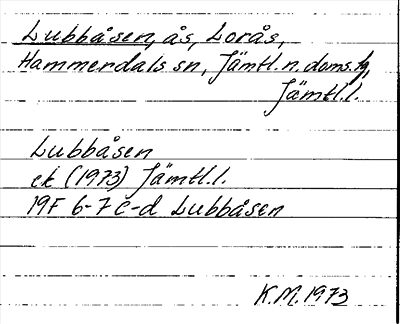 Lubbåsen, ås, Lorås,
Hammerdals sn, Jämtl.n.doms.h,
Jämtl.l.
Lubbåsen
ek (1973) Jämtl.l.
19F 6-7 c-d Lubbåsen
K.M. 1973